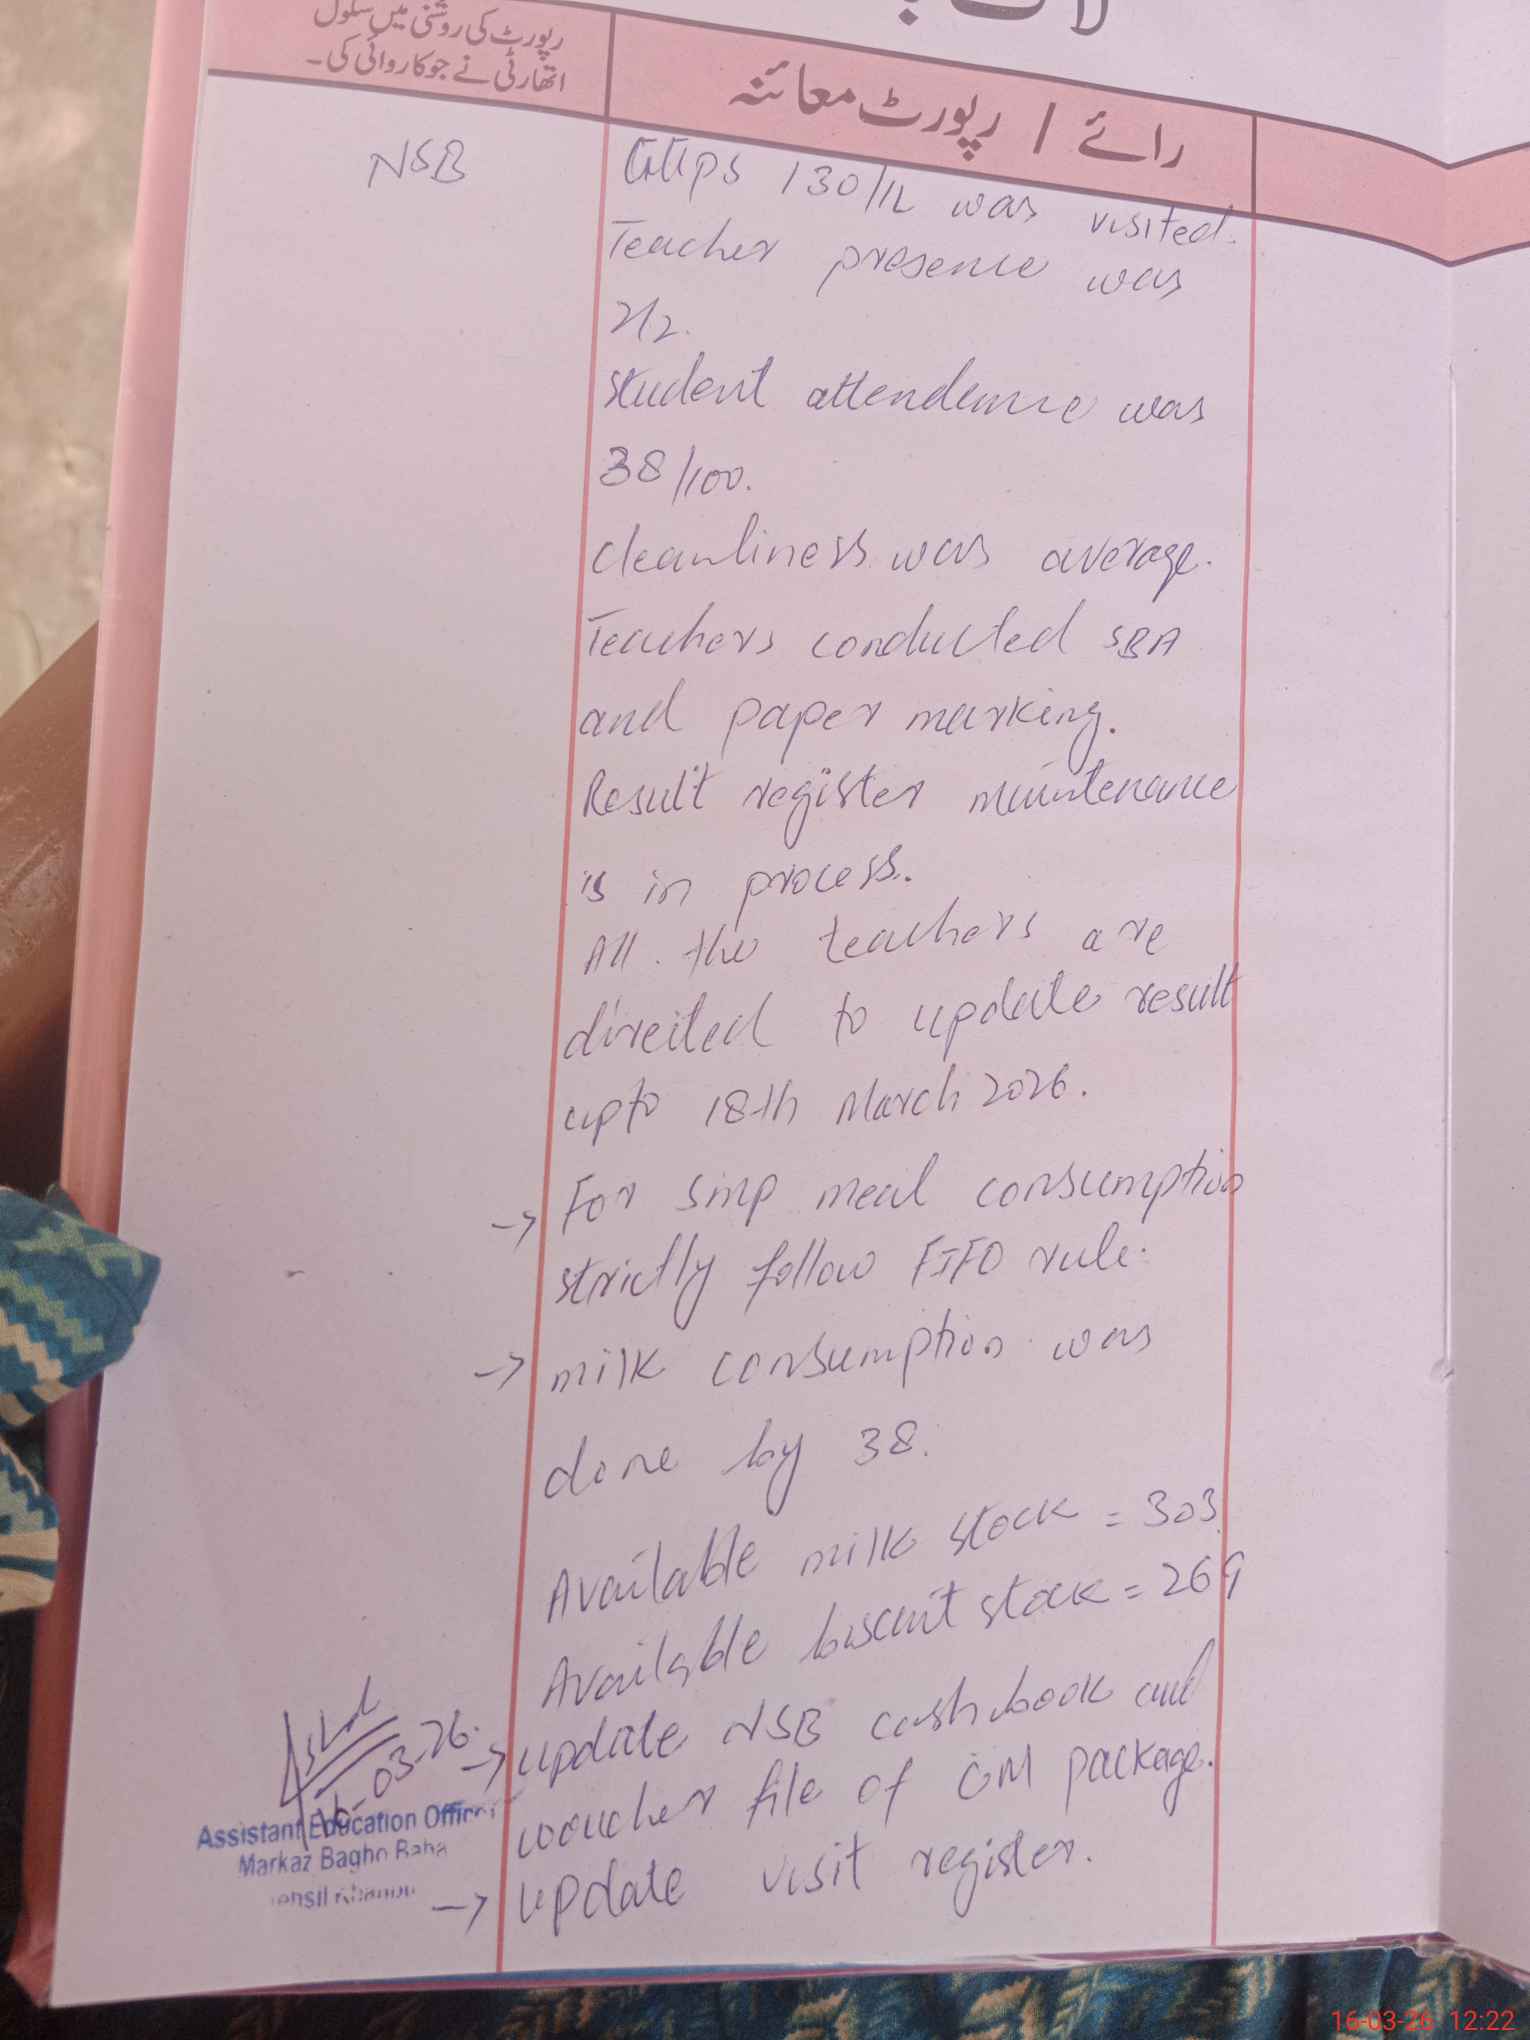 رپورٹ کی روشنی میں سکول
اتھارٹی نے جو کاروائی کی۔
رائے / رپورٹ معائنہ
NSB
130/1L was visited.
Teacher presence was
2/2.
student attendence was
38/100.
cleanliness was average.
Teachers conducted SBA
and paper marking.
Result register maintenance
is in process.
All the teachers are
directed to update result
upto 18th March 2026.
→ For smp meal consumption
strictly follow FIFO rule.
→ milk consumption was
done by 38.
Available milk stock = 303
Available biscuit stock = 269
→ update NSB cashbook and
voucher file of CM package.
→ update visit register.
16-03-26
Assistant Education Officer
Markaz Bagho Baha
Tehsil
16-03-26 12:22